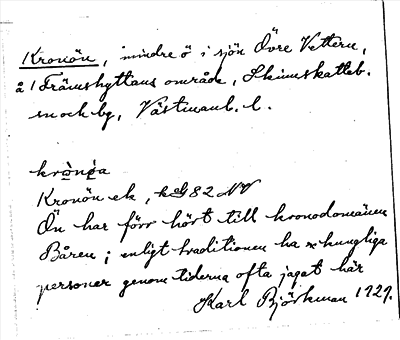 Kronön, mindre ö i sjön Övre Vettern,
å / Främshyttans område, Skinnskatteb.
sn och bg, Västmanl. l.
krònǿa
Kronön ek, kG 82 NV
Ön har förr hört till kronodomänen
Båren; enligt traditionen ha kungliga
personer genom tiderna ofta jagat här
Karl Björkman 1929.